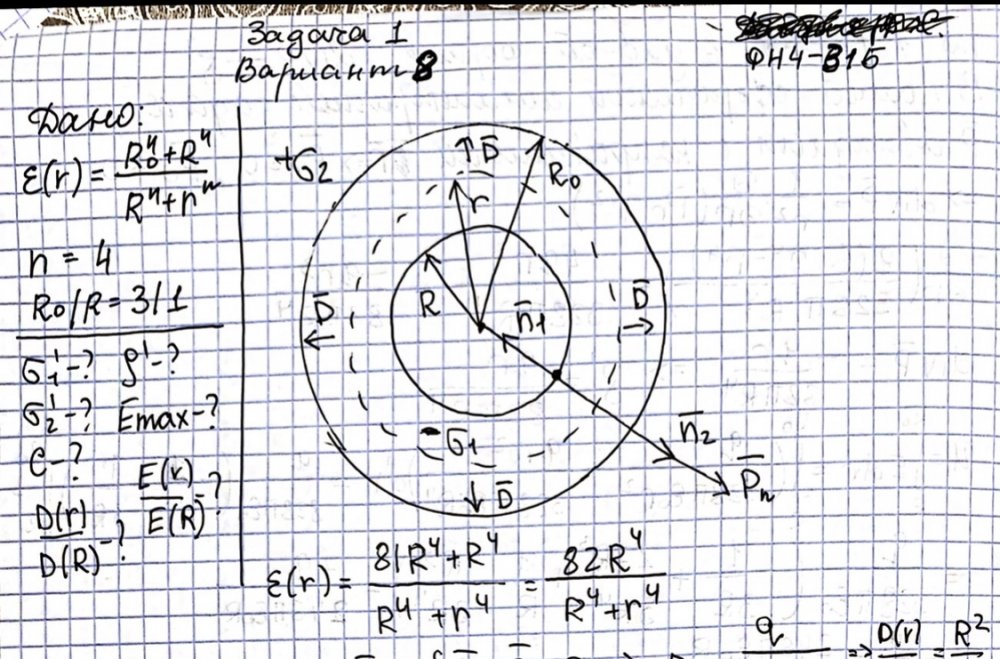 Задача 1
Вариант 8
ФН4-31Б
Дано:
ε(r) = (R₀ⁿ + Rⁿ) / (Rⁿ + rⁿ)
n = 4
R₀/R = 3/1
σ₁' - ? ρ' - ?
σ₂' - ? Emax - ?
C - ?
D(r)/D(R) - ? E(r)/E(R) - ?
+σ₂
D̄
R₀
r
R
n̄₁
D̄
D̄
-σ₁
n̄₂
P̄n
D̄
ε(r) = (81R⁴ + R⁴) / (R⁴ + r⁴) = 82R⁴ / (R⁴ + r⁴)
q
=> D(r) = R²